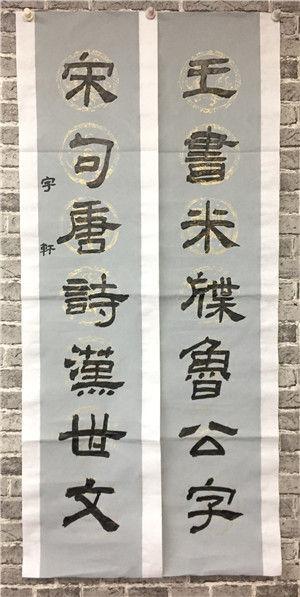 王書米牒魯公字
宋句唐詩漢世文
字軒